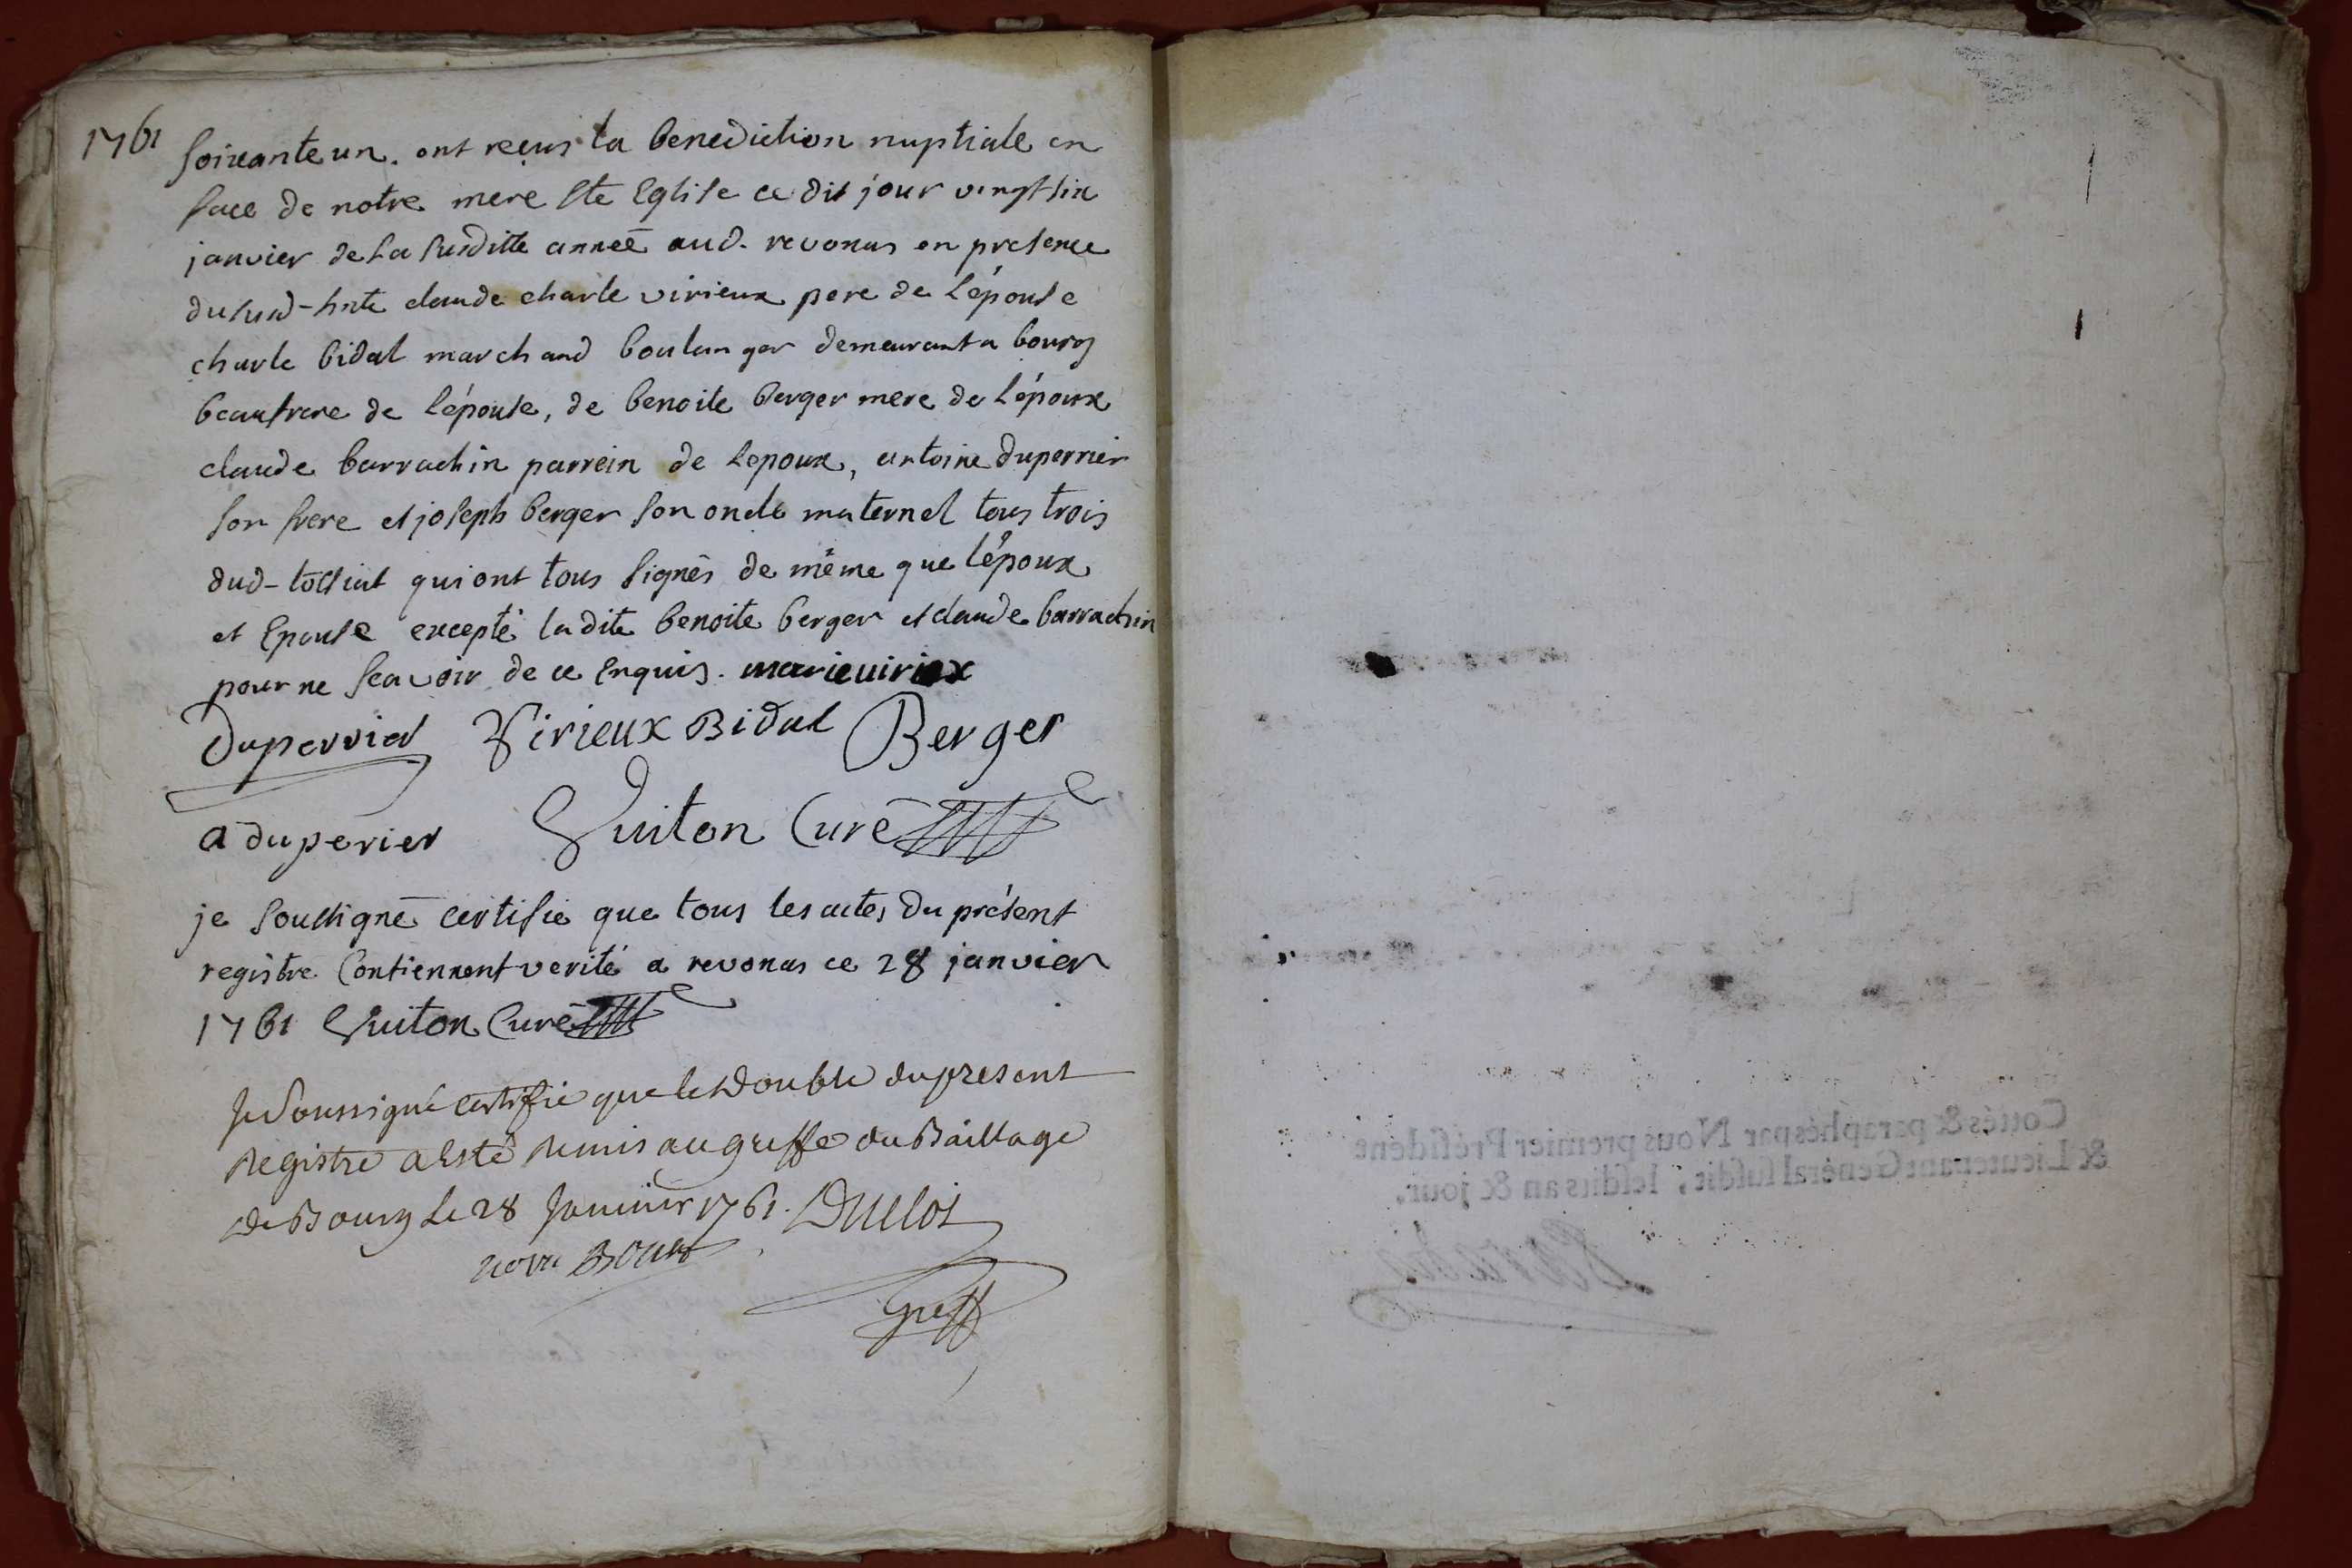 1761
soixante un. ont reçus la benediction nuptiale en
face de notre mere Ste Eglise ce dit jour vingt six
janvier de la susditte anneé aud. revonas en presence
du susd-hnte claude charle virieux pere de l'épouse
charle bidal marchand boulanger demeurant a bourg
beaufrere de l'épouse, de benoite berger mere de l'époux
claude barrachin parrein de l'epoux, antoine duperrier
son frere et joseph berger son oncle maternel tous trois
dud-tossiat qui ont tous signés de même que l'époux
et Epouse excepté la dite benoite berger et claude barrachin
pour ne scavoir de ce enquis. marie virieux
Duperrier Virieux Bidal Berger
a duperier Guiton Curé
je soussigné certifie que tous les actes du présent
registre Contiennent verité a revonas ce 28 janvier
1761 Guiton Curé
Je Soussigné certifie que le Double du present
Registre a Esté Remis au greffe du Baillage
de Bourg le 28 Janvier 1761. Duclos
Greff
Cottés & paraphés par Nous premier Président
& Lieutenant Général susdit, lesdits an & jour.